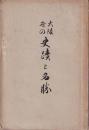 大阪
府の
史蹟と名勝